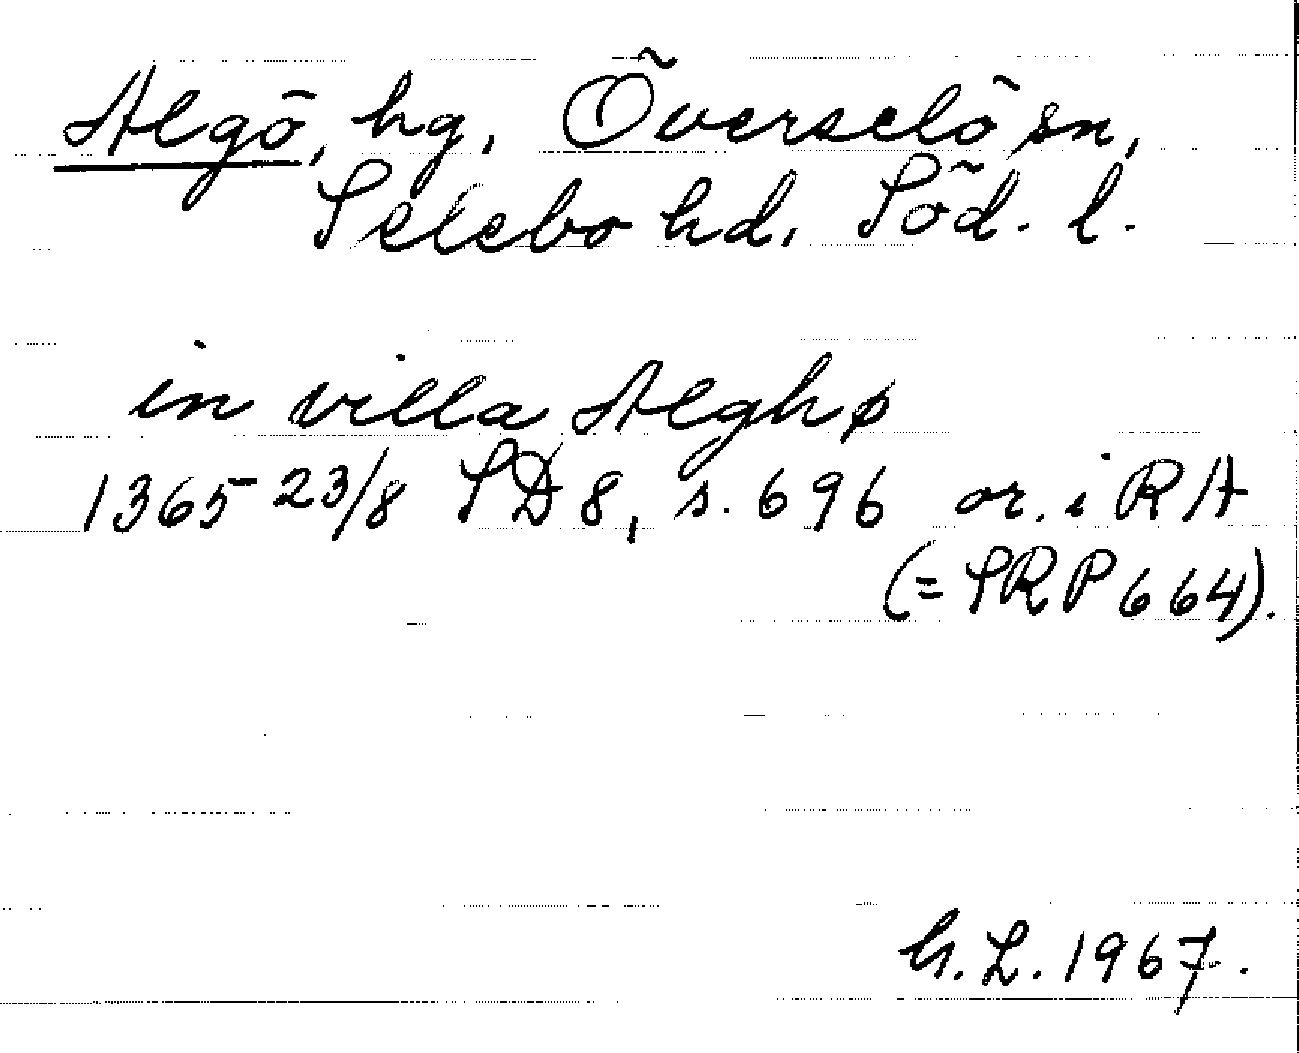 Algö, hg, Överselö sn,
Selebo hd, Söd. l.
in villa Alghø
1365 23/8 SD 8, s. 696 or. i RA
(= SRP 664).
G. L. 1967.